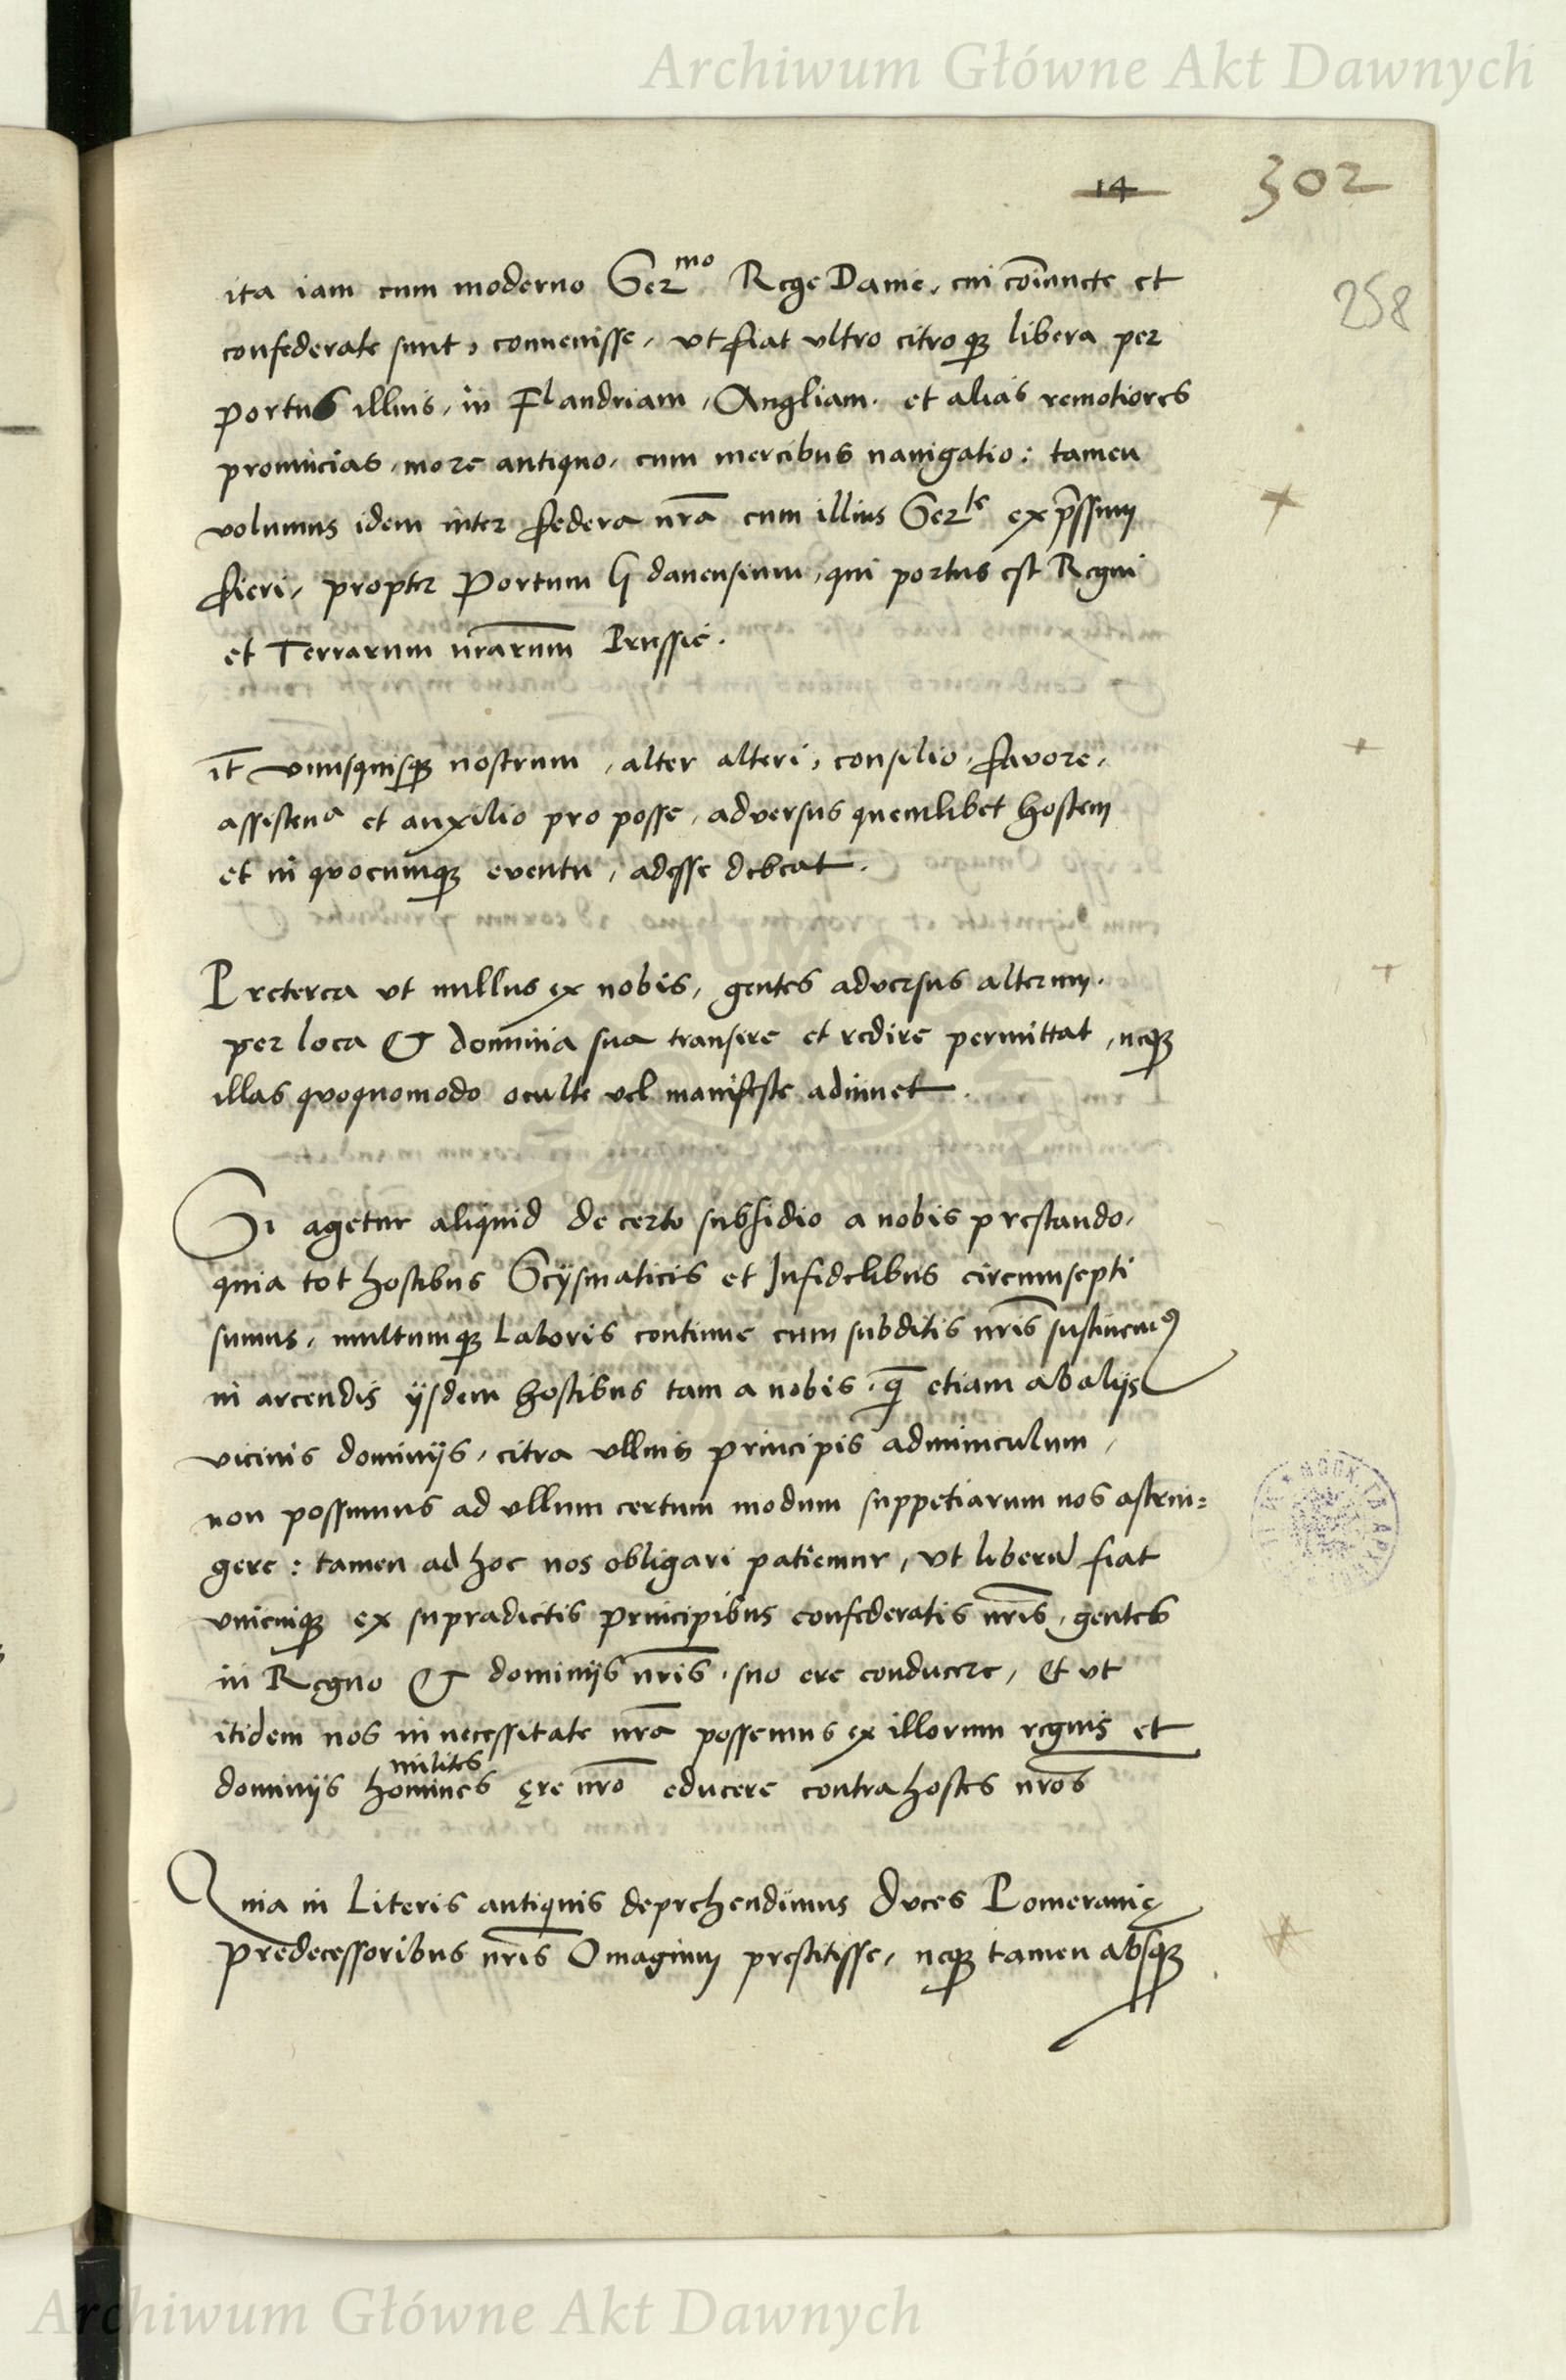 Archiwum Główne Akt Dawnych
14
302
258
ita iam cum moderno Ser^mo Rege Danie, cui coiuncte et
confederate sunt, conuenisse, vt fiat vltro citroq3 libera per
portus illius, in Flandriam, Angliam, et alias remotiores
prouincias, more antiquo, cum mercibus nauigatio: tamen
volumus idem inter federa nra cum illius Ser^te expssum
fieri, propter Portum Gdanensium, qui portus est Regni
et Terrarum nrarum Prussie.
it vnusquisq3 nostrum, alter alteri, consilio, favore,
assisten^a et auxilio pro posse, adversus quemlibet hostem
et in quocumq3 eventu, adesse debeat.
Preterea vt nullus ex nobis, gentes adversus alterum,
per loca & dominia sua transire et redire permittat, neq3
illas quoquomodo oculte vel manifeste adiuuet.
Si agetur aliquid de certo subsidio a nobis prestando,
quia tot hostibus Scysmaticis et Infidelibus circumsepti
sumus, multumq3 laboris continue cum subditis nris sustinem9
in arcendis ijsdem hostibus tam a nobis, q etiam ab alijs
vicinis dominijs, citra vllius principis adminiculum,
non possumus ad vllum certum modum suppetiarum nos astrin=
gere: tamen ad hoc nos obligari patiemur, vt liberum fiat
vnicuiq3 ex supradictis principibus confederatis nris, gentes
in Regno & dominijs nris, suo ere conducere, Et vt
itidem nos in necessitate nra possemus ex illorum regnis et
milites
dominijs homines ęre nro educere contra hostes nros
Quia in Literis antiquis deprehendimus Duces Pomeranię
predecessoribus nris Omagium prestitisse, neq3 tamen absq3
Archiwum Główne Akt Dawnych